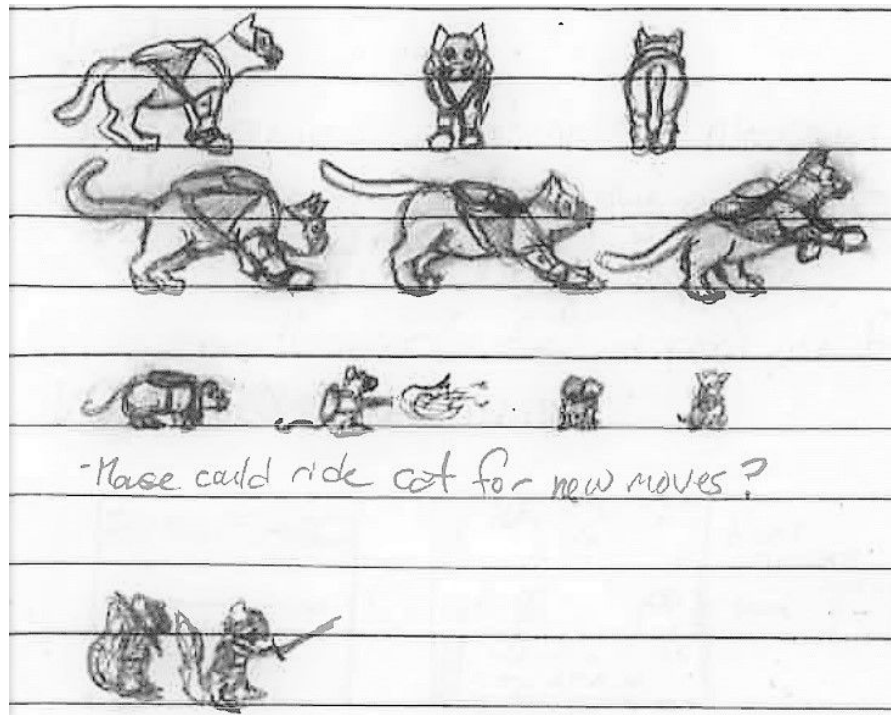 - Mouse could ride cat for new moves?